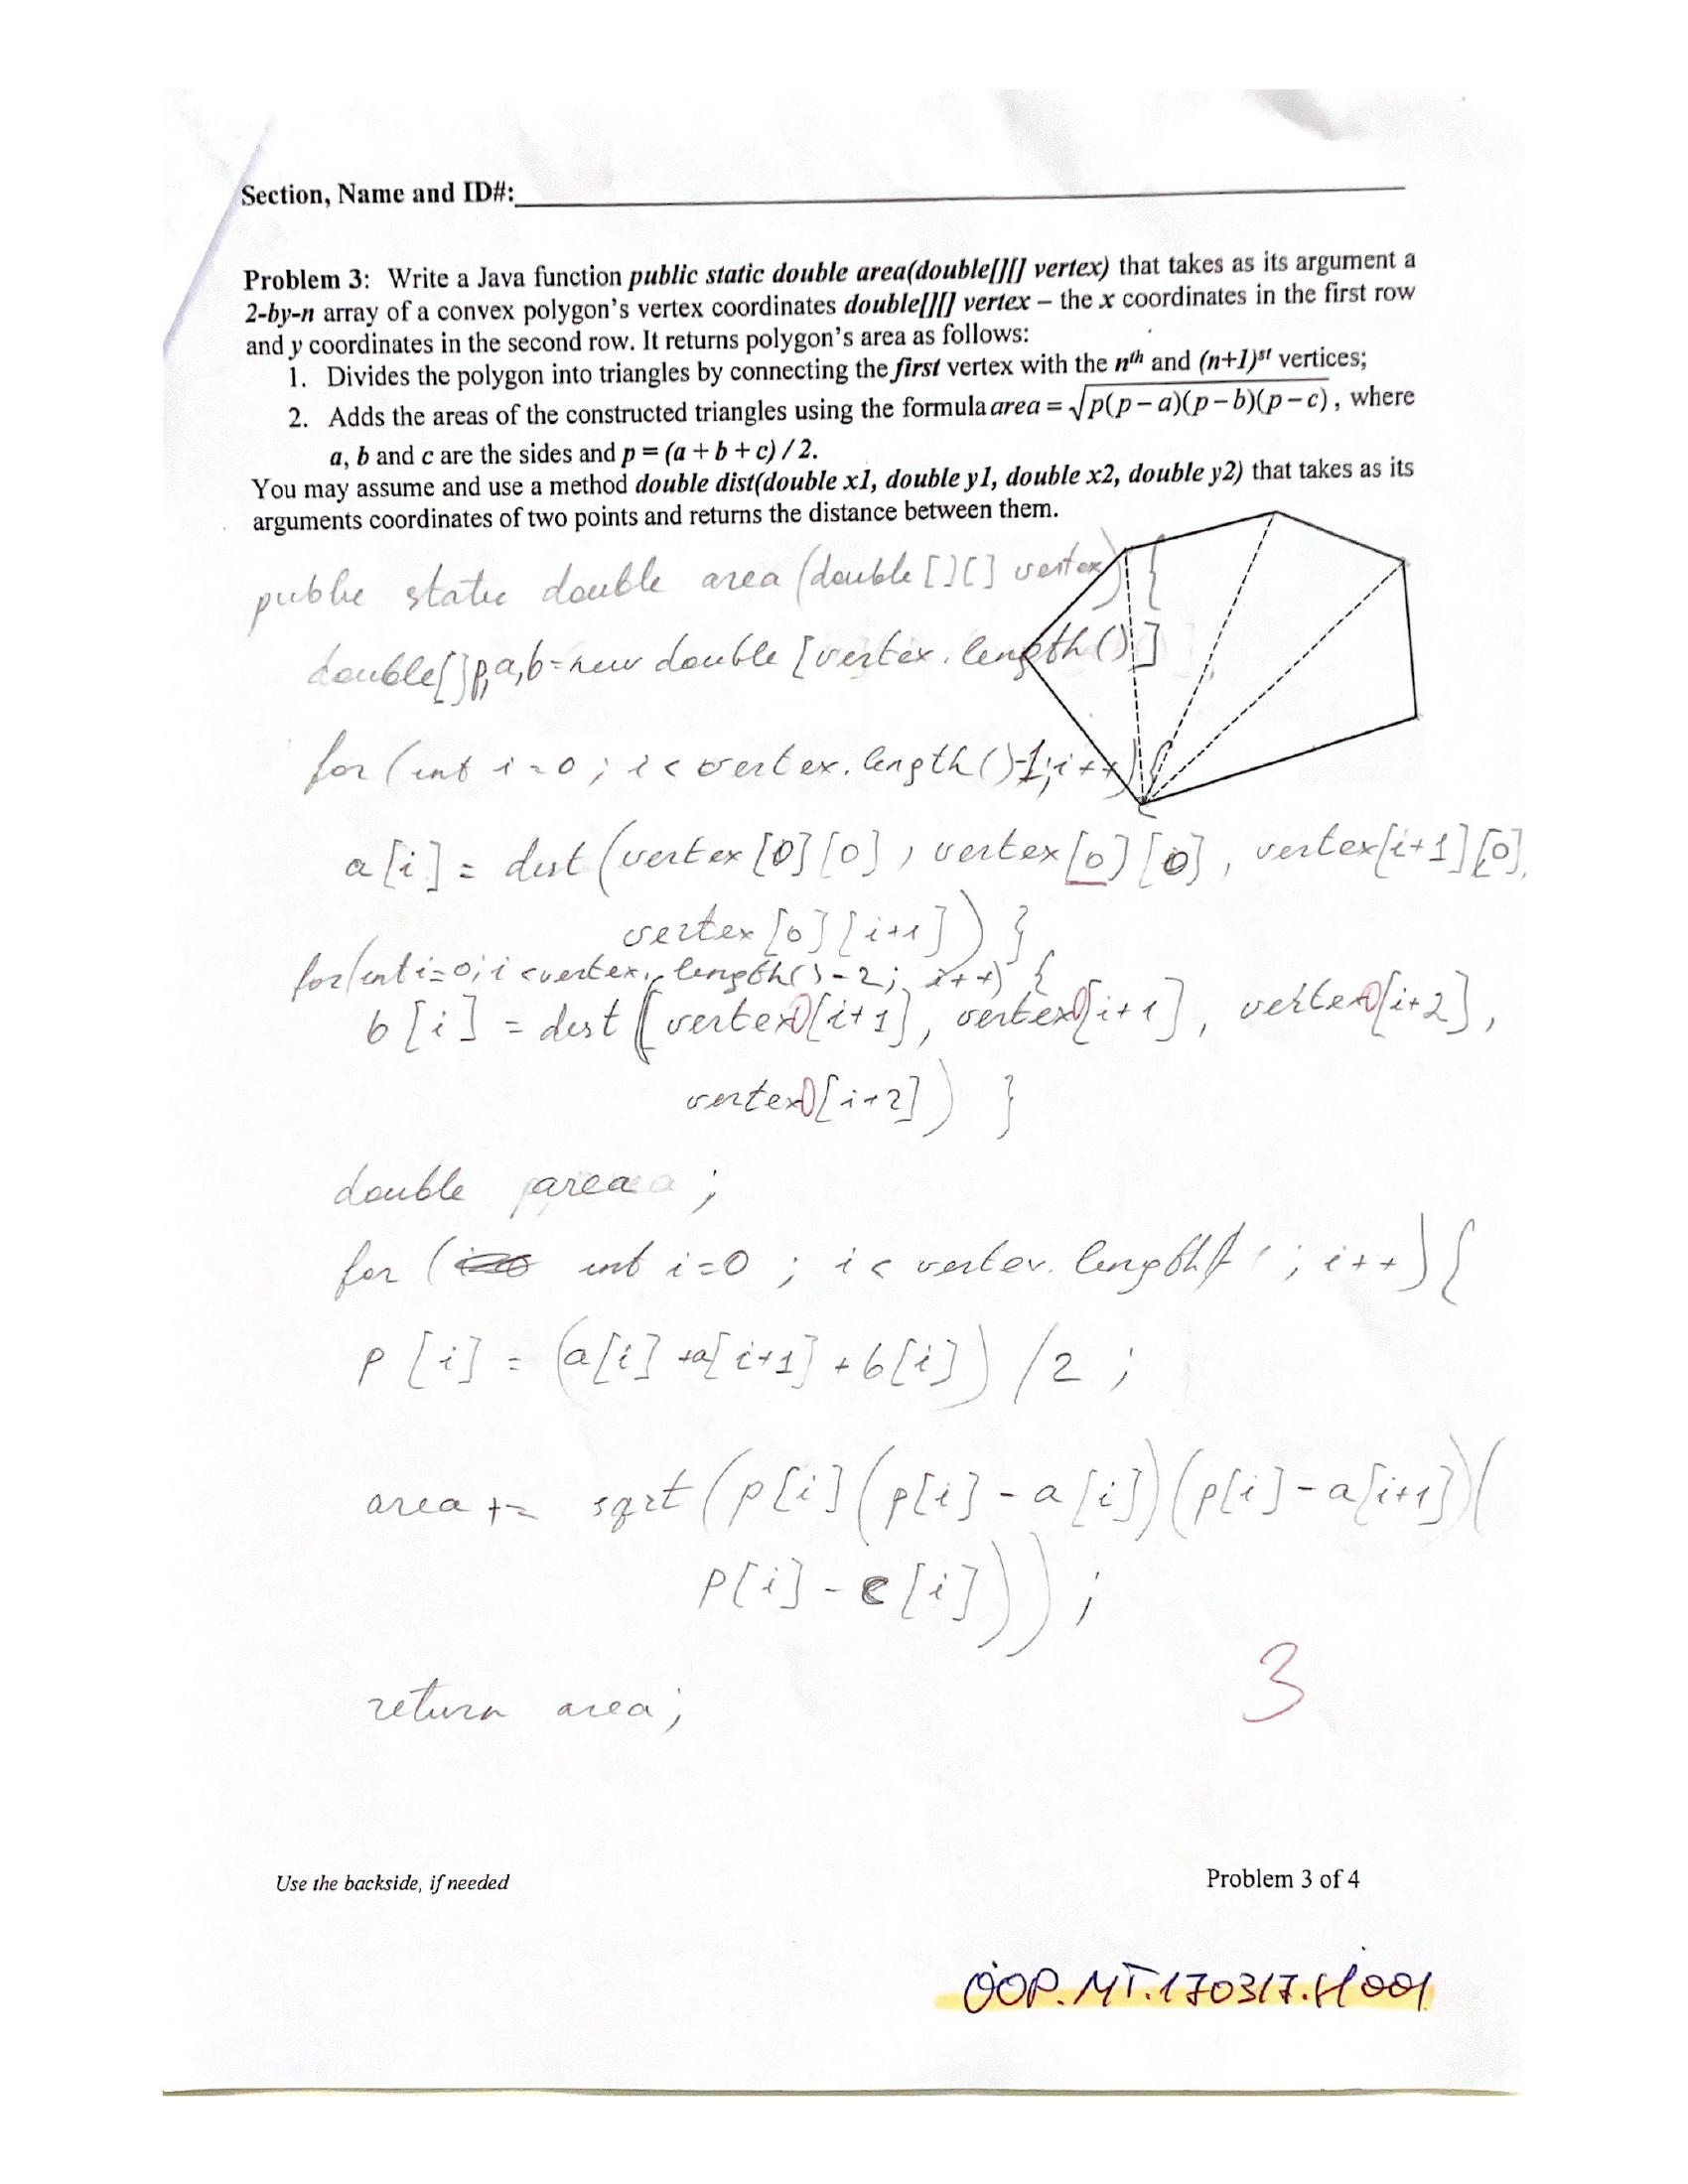 Section, Name and ID#:
Problem 3: Write a Java function public static double area(double[][] vertex) that takes as its argument a
2-by-n array of a convex polygon's vertex coordinates double[][] vertex – the x coordinates in the first row
and y coordinates in the second row. It returns polygon's area as follows:
1. Divides the polygon into triangles by connecting the first vertex with the nth and (n+1)st vertices;
2. Adds the areas of the constructed triangles using the formula area = √p(p−a)(p−b)(p−c), where
a, b and c are the sides and p = (a + b + c) / 2.
You may assume and use a method double dist(double x1, double y1, double x2, double y2) that takes as its
arguments coordinates of two points and returns the distance between them.
public static double area (double [][] vertex) {
double[]p,a,b=new double [vertex.length()]
for (int i=0; i < vertex.length()-1; i++) {
a[i] = dist (vertex [0][0], vertex [0][0], vertex[i+1][0],
vertex [0][i+1]) }
for(int i=0; i<vertex.length()-2; i++) {
b[i] = dist (vertex[i+1], vertex[i+1], vertex[i+2],
vertex[i+2]) }
double area;
for ( int i=0 ; i < vertex.length ; i++) {
p[i] = (a[i] +a[i+1] +b[i]) /2 ;
area += sqrt (p[i] (p[i] - a[i]) (p[i] - a[i+1]) (
p[i] - c[i])) ;
return area;
3
Use the backside, if needed
Problem 3 of 4
OOP.MT.170317.H001